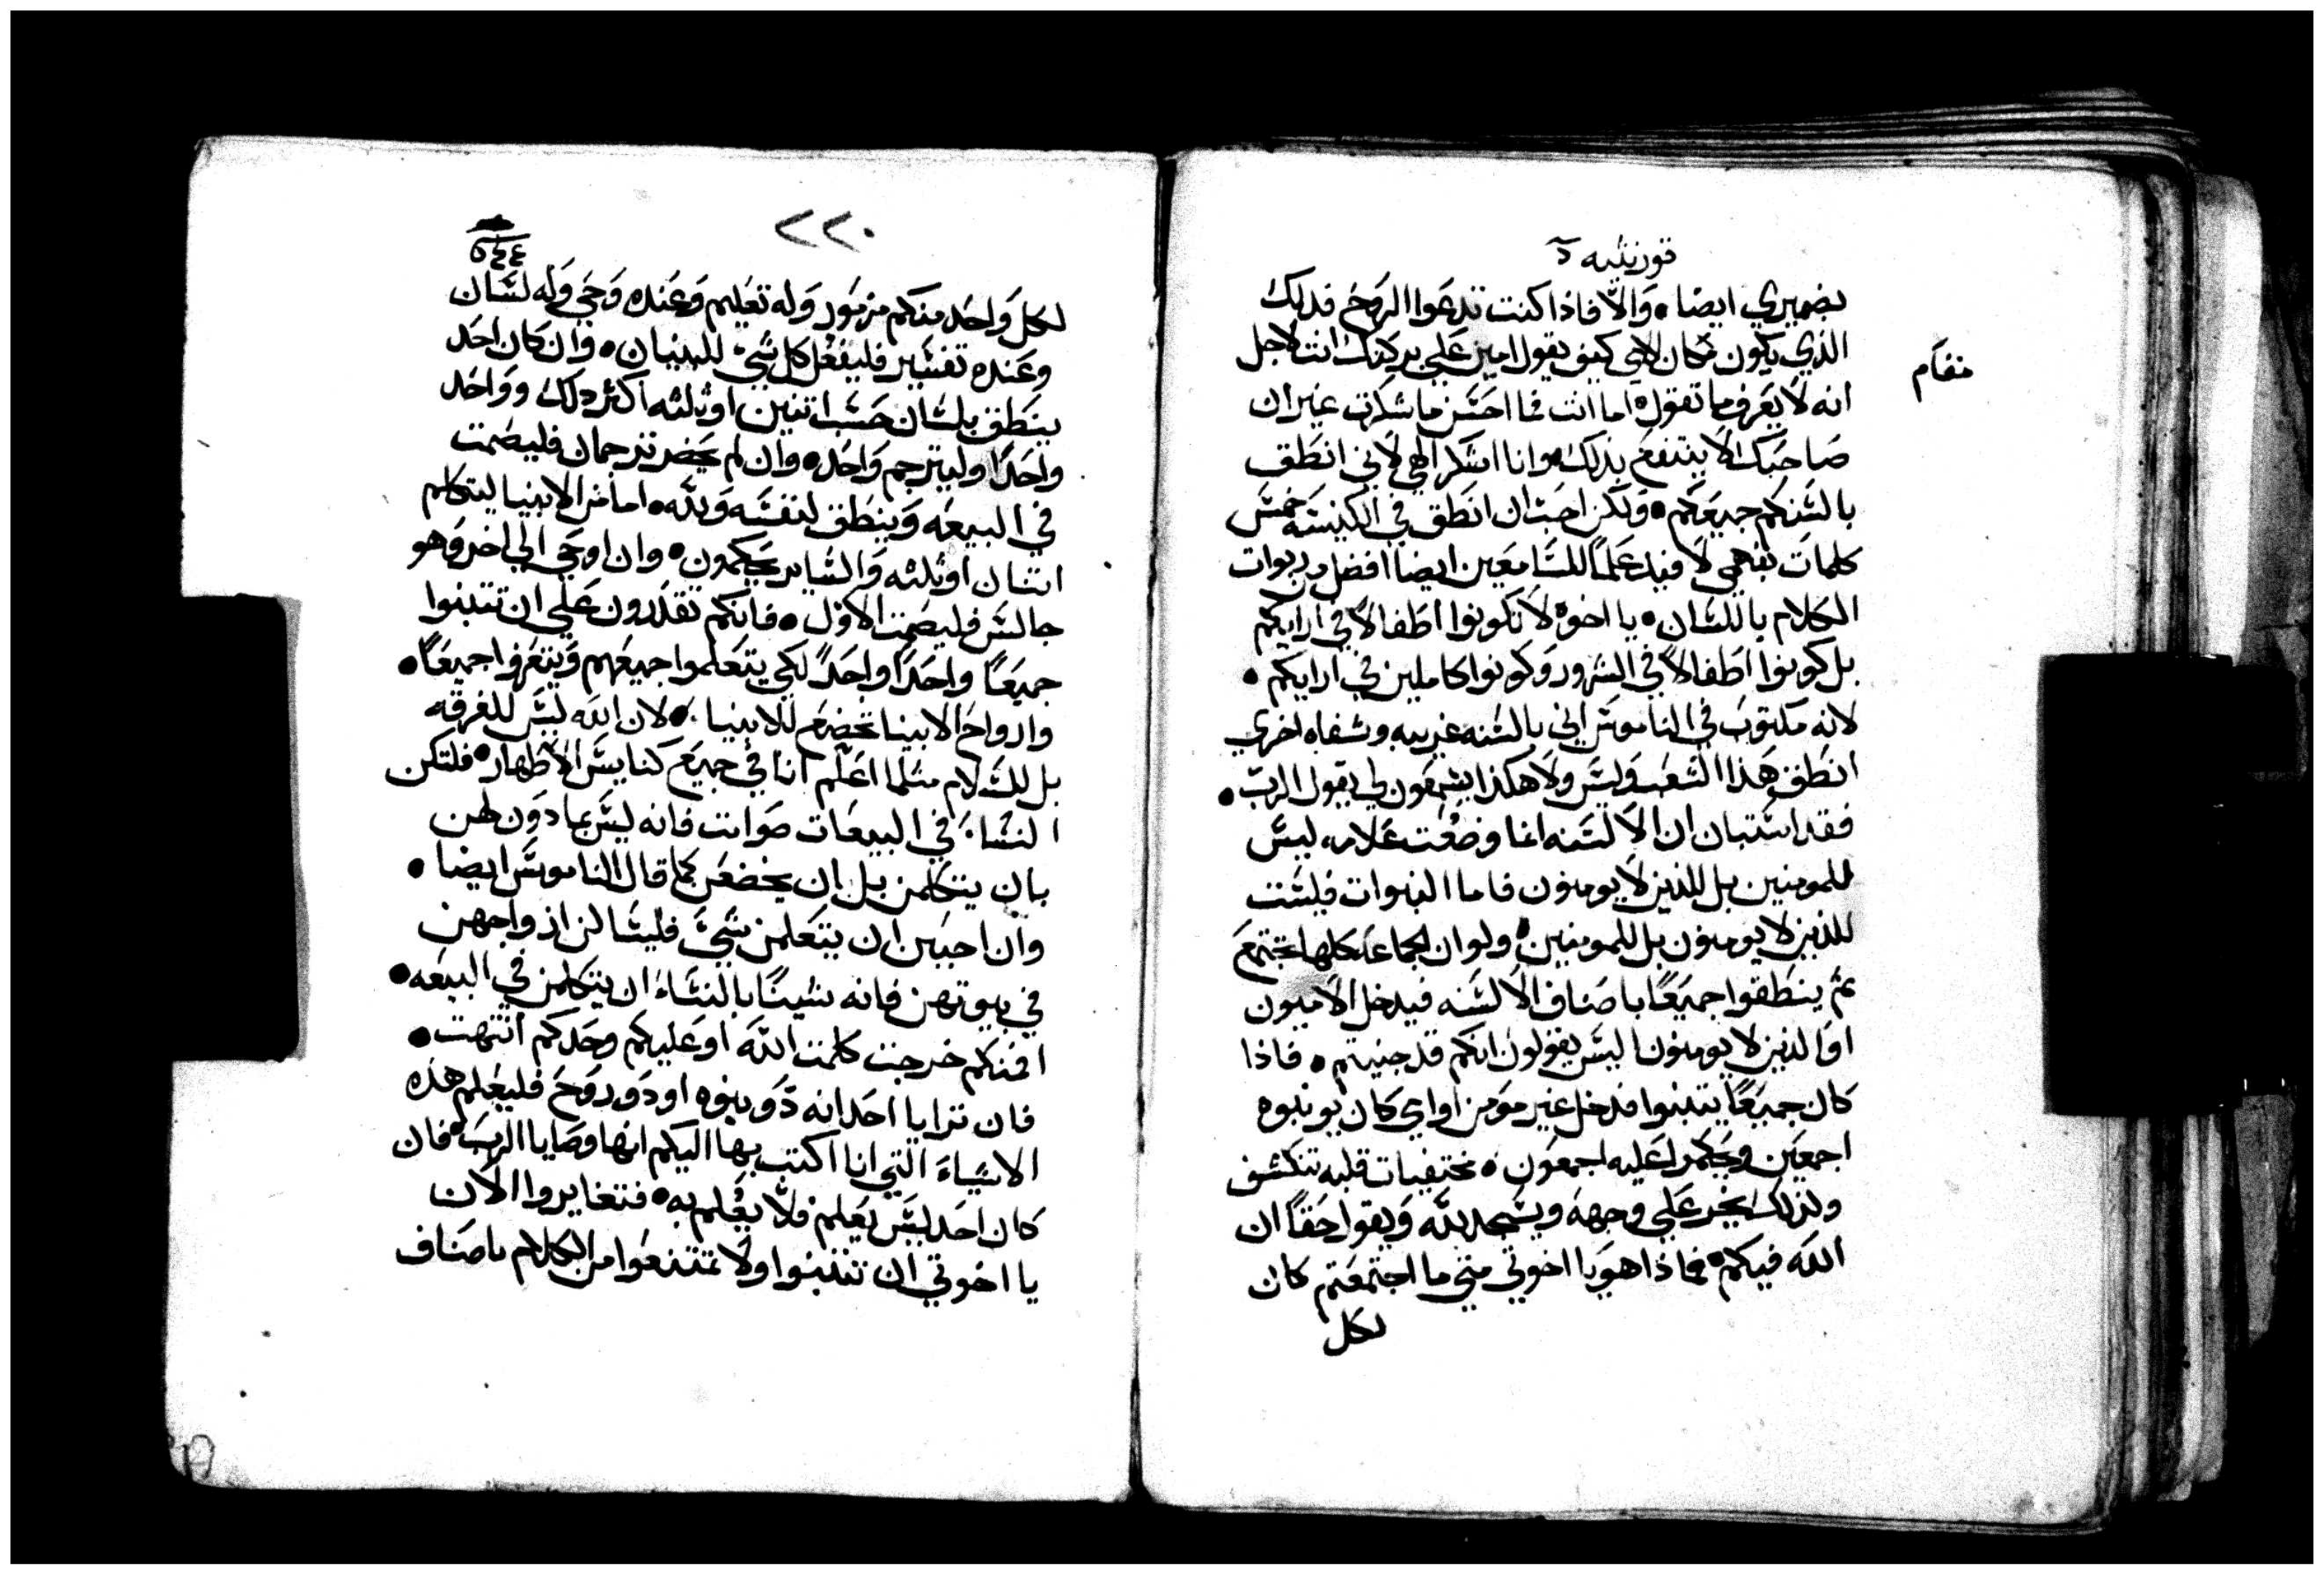 قورنتيه
بضميري ايضا • والا فاذا كنت تدعوا الروح فذلك
الذي يكون مكان الامي كيف يقول امين علي بركتك انت لاجل
مقام
انه لا يعرف ما تقول • اما انت فما احسن ما شكرت غير ان
صاحبك لا ينتفع بذلك • وانا اشكر الهي لاني انطق
بالسنكم جميعكم • ولكن احب ان انطق في الكنيسه خمس
كلمات بفهمي لافيد علما للسامعين ايضا افضل من ربوات
الكلام باللسان • يا اخوه لا تكونوا اطفالا في ارايكم
بل كونوا اطفالا في الشرور وكونوا كاملين في ارايكم •
لانه مكتوب في الناموس اني بالسنه غريبه وشفاه اخري
انطق هذا الشعب وليس ولا هكذا يسمعون لي يقول الرب •
فقد استبان ان الالسنه انما وضعت علامه ليس
للمومنين بل للذين لا يومنون فاما النبوات فليست
للذين لا يومنون بل للمومنين • ولو ان الجماعه كلها تجتمع
ثم ينطقوا جميعا باصناف الالسنه فيدخل الاميون
او الذين لا يومنون اليس يقولون انكم قد جننتم • فاذا
كان جميعا يتنبوا فدخل غير مومن او امي كان يوبنوه
اجمعين ويحكموا عليه اجمعون • مختفيات قلبه تنكشف
ولذلك يخر علي وجهه ويسجد لله ويقول حقا ان
الله فيكم • فماذا هو يا اخوتي متي ما اجتمعتم كان
لكل
٢٢٠
لكل واحد منكم مزمور وله تعليم وعنده وحي وله لسان
وعنده تفسير فليفعل كل شي للبنيان • وان كان احد
ينطق بلسان حسب اتنين او ثلثه اكثر ذلك وواحد
واحدا وليترجم واحد • وان لم يحضر ترجمان فليصمت
في البيعه وينطق لنفسه ولله • اما من الانبيا ليتكلم
اتنان او ثلثه والساير يحكمون • وان اوحي الي اخر وهو
جالس فليصمت الاول • فانكم تقدرون علي ان تتنبوا
جميعا واحدا واحدا لكي يتعلموا جميعهم ويتعزفوا جميعا •
وارواح الانبيا تخضع للانبيا • لان الله ليس للفرقه
بل للسلام مثلما اعلم انا في جميع كنايس الاطهار • فلتكن
النساء في البيعات صوامت فانه ليس بمادون لهن
بان يتكلمن بل ان يخضعن كما قال الناموس ايضا •
وان احببن ان يتعلمن شيء فليسالن ازواجهن
في بيوتهن فانه شينا بالنساء ان يتكلمن في البيعه •
افمنكم خرجت كلمت الله او عليكم وحدكم انتهت •
فان ترايا احد انه ذو نبوه او ذو روح فليعلم هذه
الاشياء التي انا اكتب بها اليكم انها وصايا الرب • فان
كان احد ليس يعلم فلا يعلم به • فتغايروا الان
يا اخوتي ان تتنبوا ولا تمتنعوا من الكلام باصناف